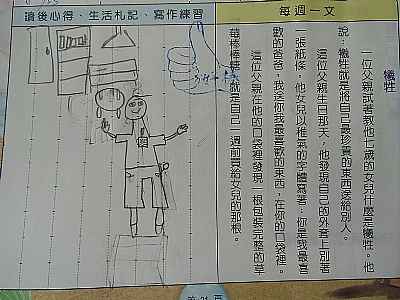 每週一文
犧牲
一位父親試著教他七歲的女兒什麼是犧牲。他
說：犧牲就是將自己最珍貴的東西送給別人。
這位父親生日那天，他發現自己的外套上別著
一張紙條，他女兒以稚氣的字體寫著：你是我最喜
歡的爸爸，我送你我最喜歡的東西，在你的口袋裡。
這位父親在他的口袋裡發現一根包裝完整的草
莓棒棒糖，就是自己一週前買給女兒的那根。
讀後心得、生活札記、寫作練習